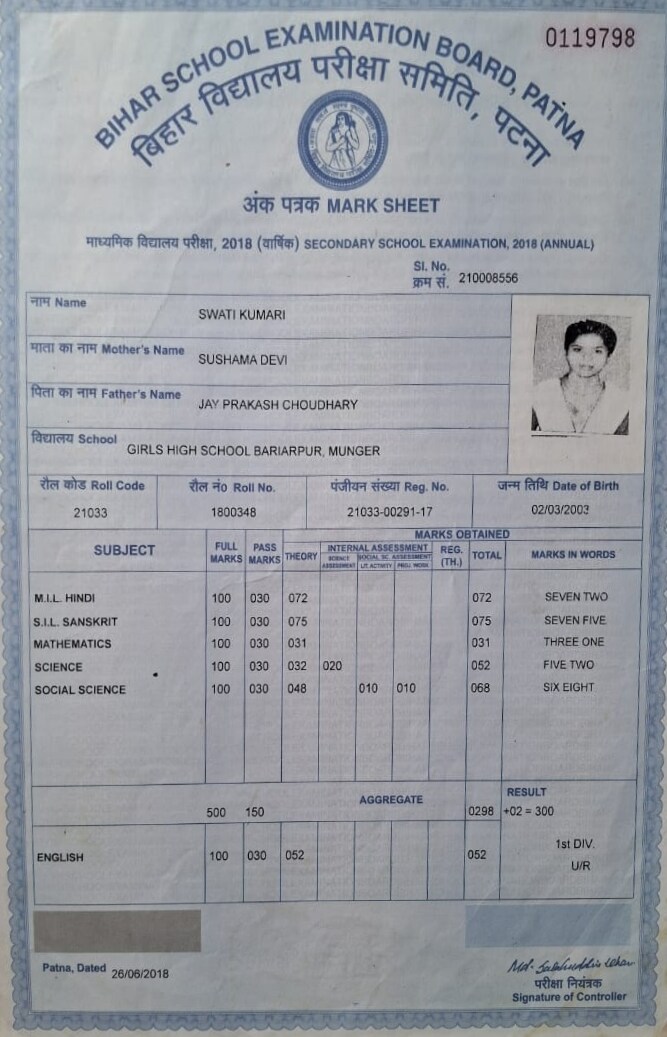 0119798
BIHAR SCHOOL EXAMINATION BOARD, PATNA
बिहार विद्यालय परीक्षा समिति, पटना
अंक पत्रक MARK SHEET
माध्यमिक विद्यालय परीक्षा, 2018 (वार्षिक) SECONDARY SCHOOL EXAMINATION, 2018 (ANNUAL)
Sl. No.
क्रम सं. 210008556
नाम Name SWATI KUMARI
माता का नाम Mother's Name SUSHAMA DEVI
पिता का नाम Father's Name JAY PRAKASH CHOUDHARY
विद्यालय School GIRLS HIGH SCHOOL BARIARPUR, MUNGER
रौल कोड Roll Code रौल नं० Roll No. पंजीयन संख्या Reg. No. जन्म तिथि Date of Birth
21033 1800348 21033-00291-17 02/03/2003
MARKS OBTAINED
SUBJECT FULL MARKS PASS MARKS THEORY INTERNAL ASSESSMENT REG. (TH.) TOTAL MARKS IN WORDS
SCIENCE ASSESSMENT SOCIAL SC. ASSESSMENT
LIT. ACTIVITY PROJ. WORK
M.I.L. HINDI 100 030 072 072 SEVEN TWO
S.I.L. SANSKRIT 100 030 075 075 SEVEN FIVE
MATHEMATICS 100 030 031 031 THREE ONE
SCIENCE 100 030 032 020 052 FIVE TWO
SOCIAL SCIENCE 100 030 048 010 010 068 SIX EIGHT
AGGREGATE RESULT
500 150 0298 +02 = 300
ENGLISH 100 030 052 052 1st DIV.
U/R
Patna, Dated 26/06/2018
परीक्षा नियंत्रक
Signature of Controller